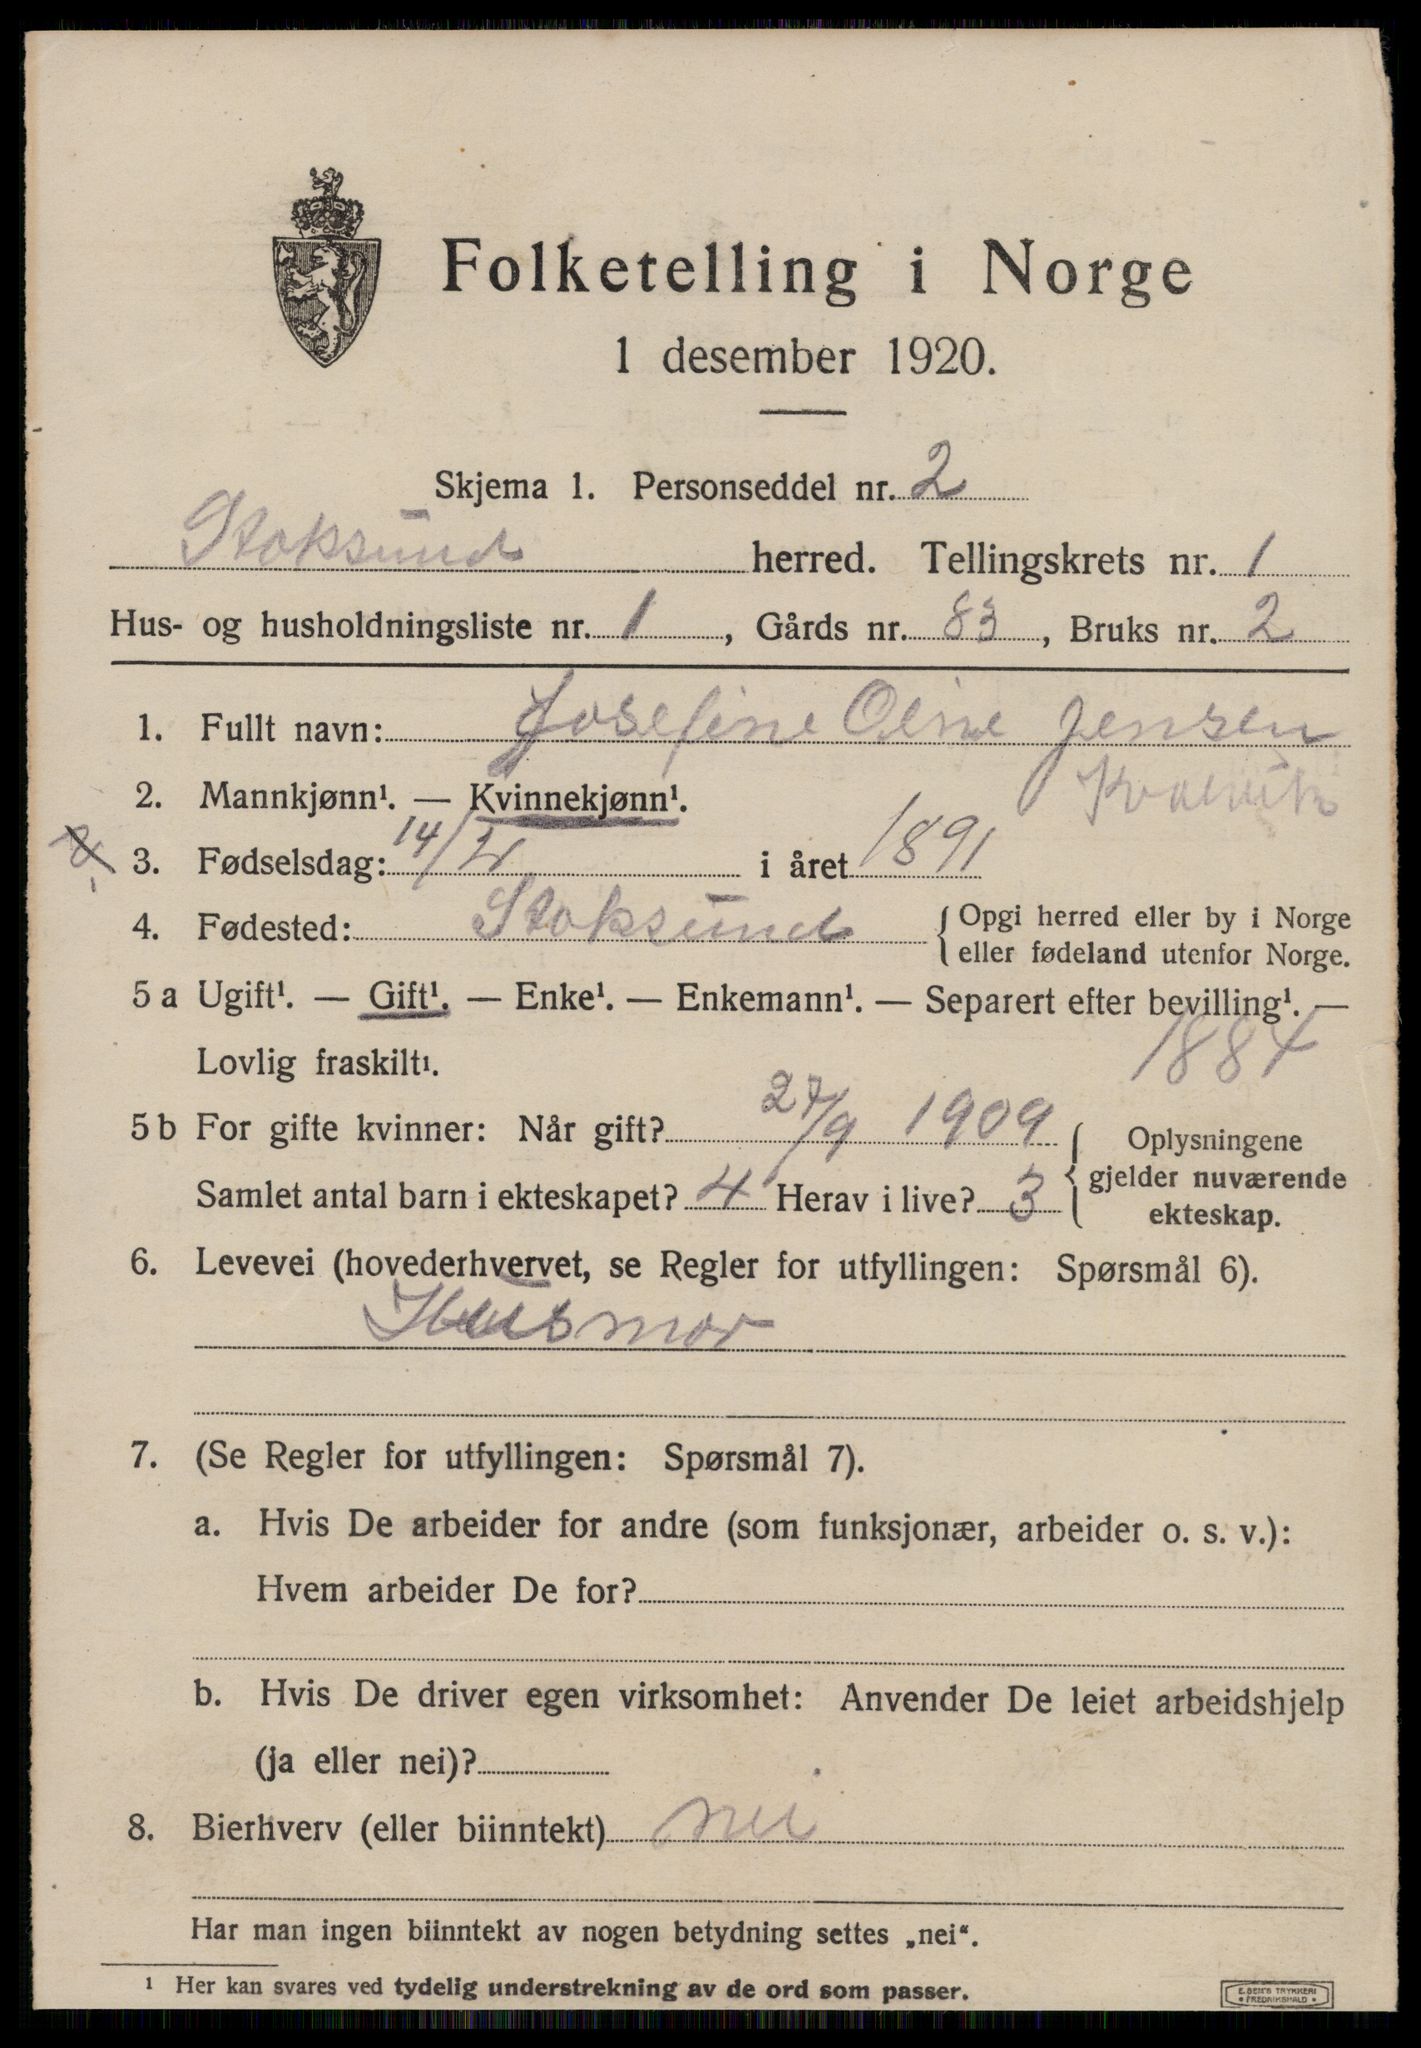 Folketelling i Norge
1 desember 1920.
Skjema 1. Personseddel nr. 2
Stoksund herred. Tellingskrets nr. 1
Hus- og husholdningsliste nr. 1, Gårds nr. 83, Bruks nr. 2
1. Fullt navn: Josefine Oline Jensen
2. Mannkjønn¹. — Kvinnekjønn¹.
3. Fødselsdag: 14/4 i året 1891
4. Fødested: Stoksund { Opgi herred eller by i Norge
eller fødeland utenfor Norge.
5 a Ugift¹. — Gift¹. — Enke¹. — Enkemann¹. — Separert efter bevilling¹. —
Lovlig fraskilt¹. 1884
5 b For gifte kvinner: Når gift? 27/9 1909
Samlet antal barn i ekteskapet? 4 Herav i live? 3
{ Oplysningene
gjelder nuværende
ekteskap.
6. Levevei (hovederhvervet, se Regler for utfyllingen: Spørsmål 6).
Husmor
7. (Se Regler for utfyllingen: Spørsmål 7).
a. Hvis De arbeider for andre (som funksjonær, arbeider o. s. v.):
Hvem arbeider De for?
b. Hvis De driver egen virksomhet: Anvender De leiet arbeidshjelp
(ja eller nei)?
8. Bierhverv (eller biinntekt) nei
Har man ingen biinntekt av nogen betydning settes „nei“.
¹ Her kan svares ved tydelig understrekning av de ord som passer.
E. SEM'S TRYKKERI
• FREDRIKSHALD •